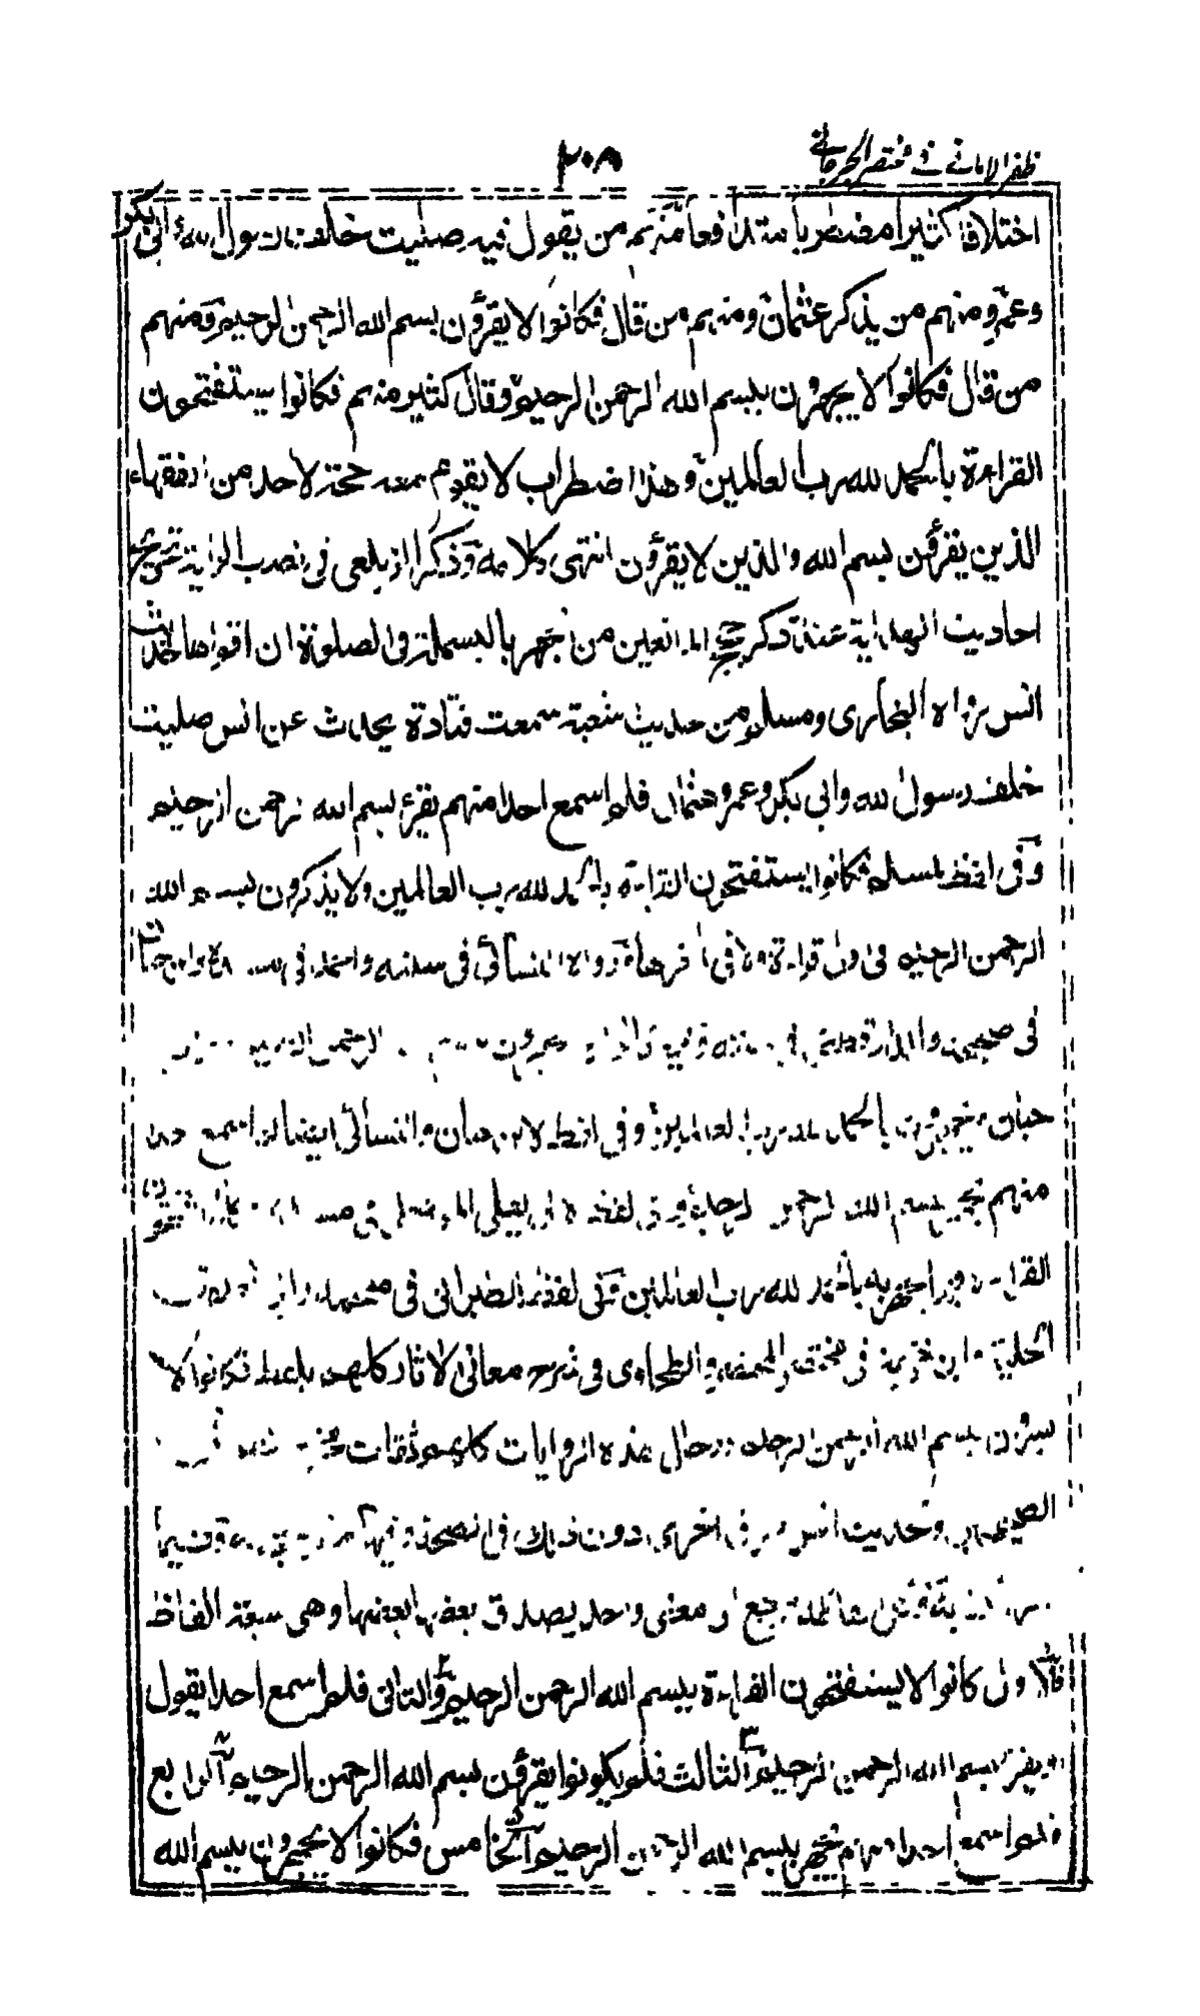 ظفر الامانی فی مختصر الجرجانی
۲۰۸
اختلافا کثیرا مضطربا متدافعا منهم من یقول فیه صلیت خلف رسول الله وابی بکر
وعمر ومنهم من یذکر عثمان ومنهم من قال فکانوا لا یقرؤن بسم الله الرحمن الرحیم ومنهم
من قال فکانوا لا یجهرون ببسم الله الرحمن الرحیم وقال کثیر منهم فکانوا یستفتحون
القراءة بالحمد لله رب العالمین وهذا اضطراب لا یقوم معه حجة لاحد من الفقهاء
الذین یقرؤن بسم الله والذین لا یقرؤن انتهی کلامه وذکر الزیلعی فی نصب الرایة تخریج
احادیث الهدایة عند ذکر حجج المانعین من الجهر بالبسملة فی الصلوة ان اقواها حدیث
انس رواه البخاری ومسلم من حدیث شعبة سمعت قتادة یحدث عن انس صلیت
خلف رسول الله وابی بکر وعمر وعثمان فلم اسمع احدا منهم یقرء بسم الله الرحمن الرحیم
وفی لفظ لمسلم فکانوا یستفتحون القراءة بالحمد لله رب العالمین ولا یذکرون بسم الله
الرحمن الرحیم فی اول قراءة ولا فی آخرها ورواه النسائی فی سننه واحمد فی مسنده وابن حبان
فی صحیحه والدارقطنی فی سننه
حبان ویجهرون بالحمد لله رب العالمین وفی لفظ لابن حبان والنسائی ایضا لم اسمع احدا
منهم یجهر ببسم الله الرحمن الرحیم وفی لفظ لابی یعلی الموصلی فی مسنده فکانوا یفتتحون
القراءة فیما یجهر به بالحمد لله رب العالمین وفی لفظ للطبرانی فی معجمه وابی نعیم فی
الحلیة وابن خزیمة فی مختصر المختصر والطحاوی فی شرح معانی الآثار کلهم بلفظ فکانوا لا
یسرون ببسم الله الرحمن الرحیم ورجال هذه الروایات کلهم ثقات مخرج لهم فی
الصحیحین ولحدیث انس طرق اخری دون ذلک فی الصحة
جمیع الی معنی واحد یصدق بعضها بعضها وهی سبعة الفاظ
فالاول کانوا لا یستفتحون القراءة ببسم الله الرحمن الرحیم والثانی فلم اسمع احدا یقول
او یقرء بسم الله الرحمن الرحیم الثالث فلم یکونوا یقرؤن بسم الله الرحمن الرحیم الرابع
فلم اسمع احدا منهم یجهر ببسم الله الرحمن الرحیم الخامس فکانوا لا یجهرون ببسم الله